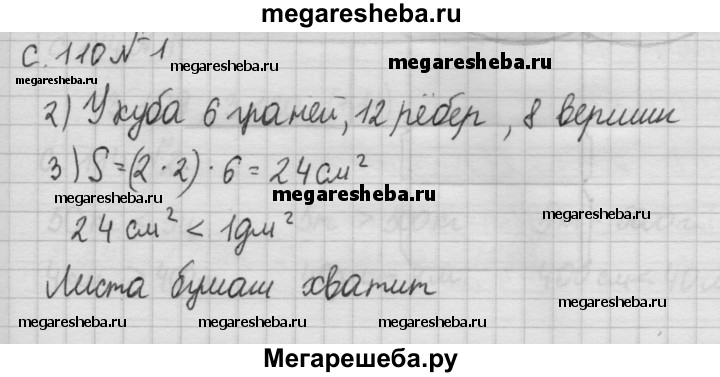 megaresheba.ru
с. 110 № 1
megaresheba.ru
megaresheba.ru
2) У куба 6 граней, 12 рёбер, 8 вершин
3) S = (2 · 2) · 6 = 24 см²
megaresheba.ru
megaresheba.ru
megaresheba.ru
24 см² < 1дм²
Листа бумаги хватит
megaresheba.ru
megaresheba.ru
megaresheba.ru
megaresheba.ru
Мегарешеба.ру